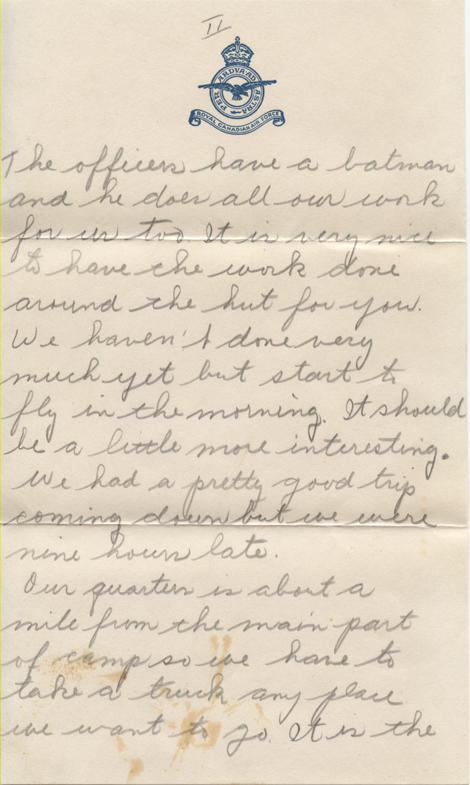 II
PER ARDVA AD ASTRA
ROYAL CANADIAN AIR FORCE
The officers have a batman
and he does all our work
for us too It is very nice
to have the work done
around the hut for you.
We haven't done very
much yet but start to
fly in the morning. It should
be a little more interesting.
We had a pretty good trip
coming down but we were
nine hours late.
Our quarters is about a
mile from the main part
of camp so we have to
take a truck any place
we want to go. It is the